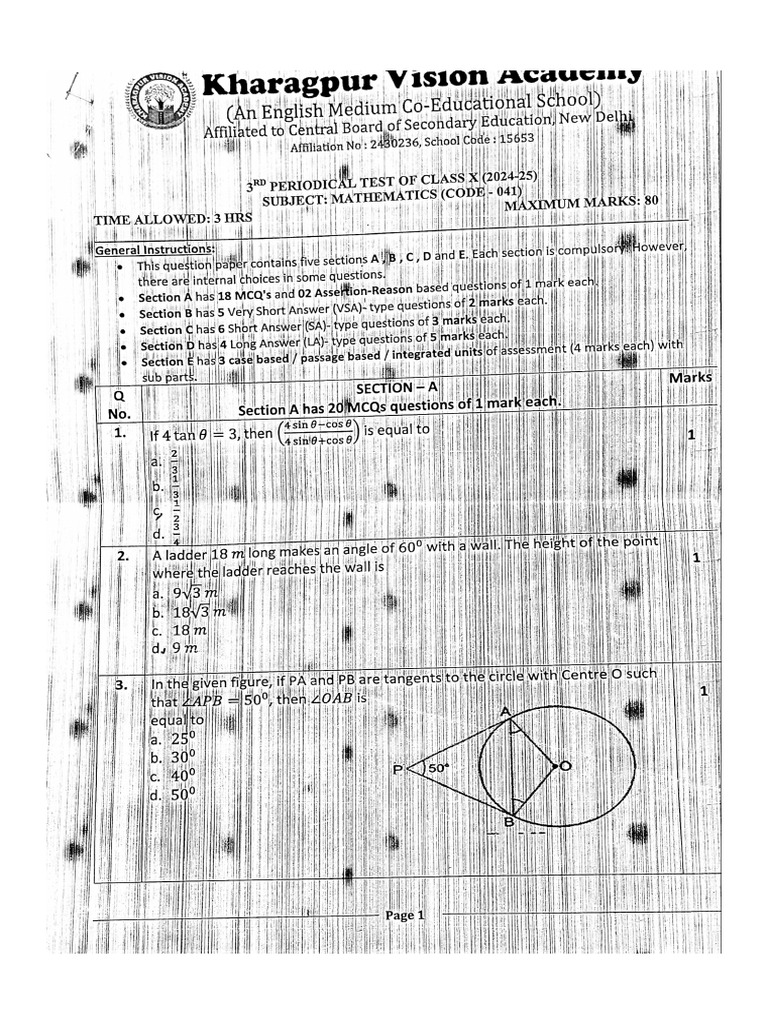 KHARAGPUR VISION ACADEMY
Kharagpur Vision Academy
(An English Medium Co-Educational School)
Affiliated to Central Board of Secondary Education, New Delhi
Affiliation No : 2430236, School Code : 15653
3RD PERIODICAL TEST OF CLASS X (2024-25)
SUBJECT: MATHEMATICS (CODE - 041)
TIME ALLOWED: 3 HRS MAXIMUM MARKS: 80
General Instructions:
• This question paper contains five sections A , B , C , D and E. Each section is compulsory. However,
there are internal choices in some questions.
• Section A has 18 MCQ's and 02 Assertion-Reason based questions of 1 mark each.
• Section B has 5 Very Short Answer (VSA)- type questions of 2 marks each.
• Section C has 6 Short Answer (SA)- type questions of 3 marks each.
• Section D has 4 Long Answer (LA)- type questions of 5 marks each.
• Section E has 3 case based / passage based / integrated units of assessment (4 marks each) with
sub parts.
Q No. SECTION – A Marks
Section A has 20 MCQs questions of 1 mark each.
1. If 4 tan θ = 3, then (4 sin θ−cos θ / 4 sin θ+cos θ) is equal to 1
a. 2/3
b. 1/3
c. 1/2
d. 3/4
2. A ladder 18 m long makes an angle of 60⁰ with a wall. The height of the point 1
where the ladder reaches the wall is
a. 9√3 m
b. 18√3 m
c. 18 m
d. 9 m
3. In the given figure, if PA and PB are tangents to the circle with Centre O such 1
that ∠APB = 50⁰, then ∠OAB is
equal to
a. 25⁰
b. 30⁰
c. 40⁰
d. 50⁰
A
P 50° O
B
Page 1